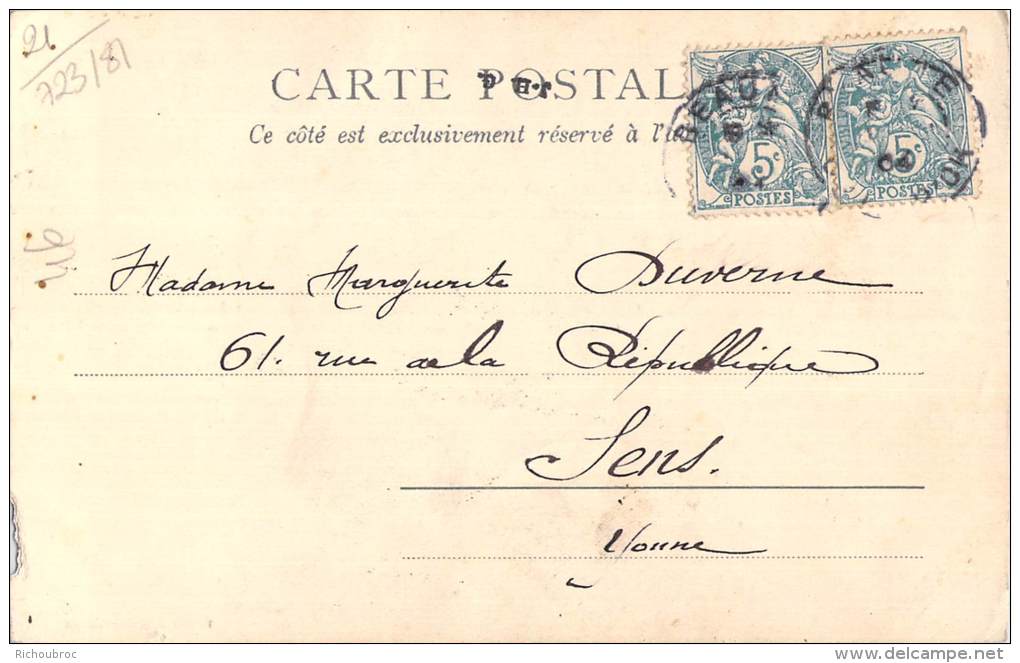 21
723/81
CARTE POSTAL
J.H.G.
Ce côté est exclusivement réservé à l'a
BEAU
5c
POSTES
5c
POSTES
02
416
Madame Marguerite Duverne
61. rue de la République
Sens.
Yonne
Richoubroc
delcampe.net